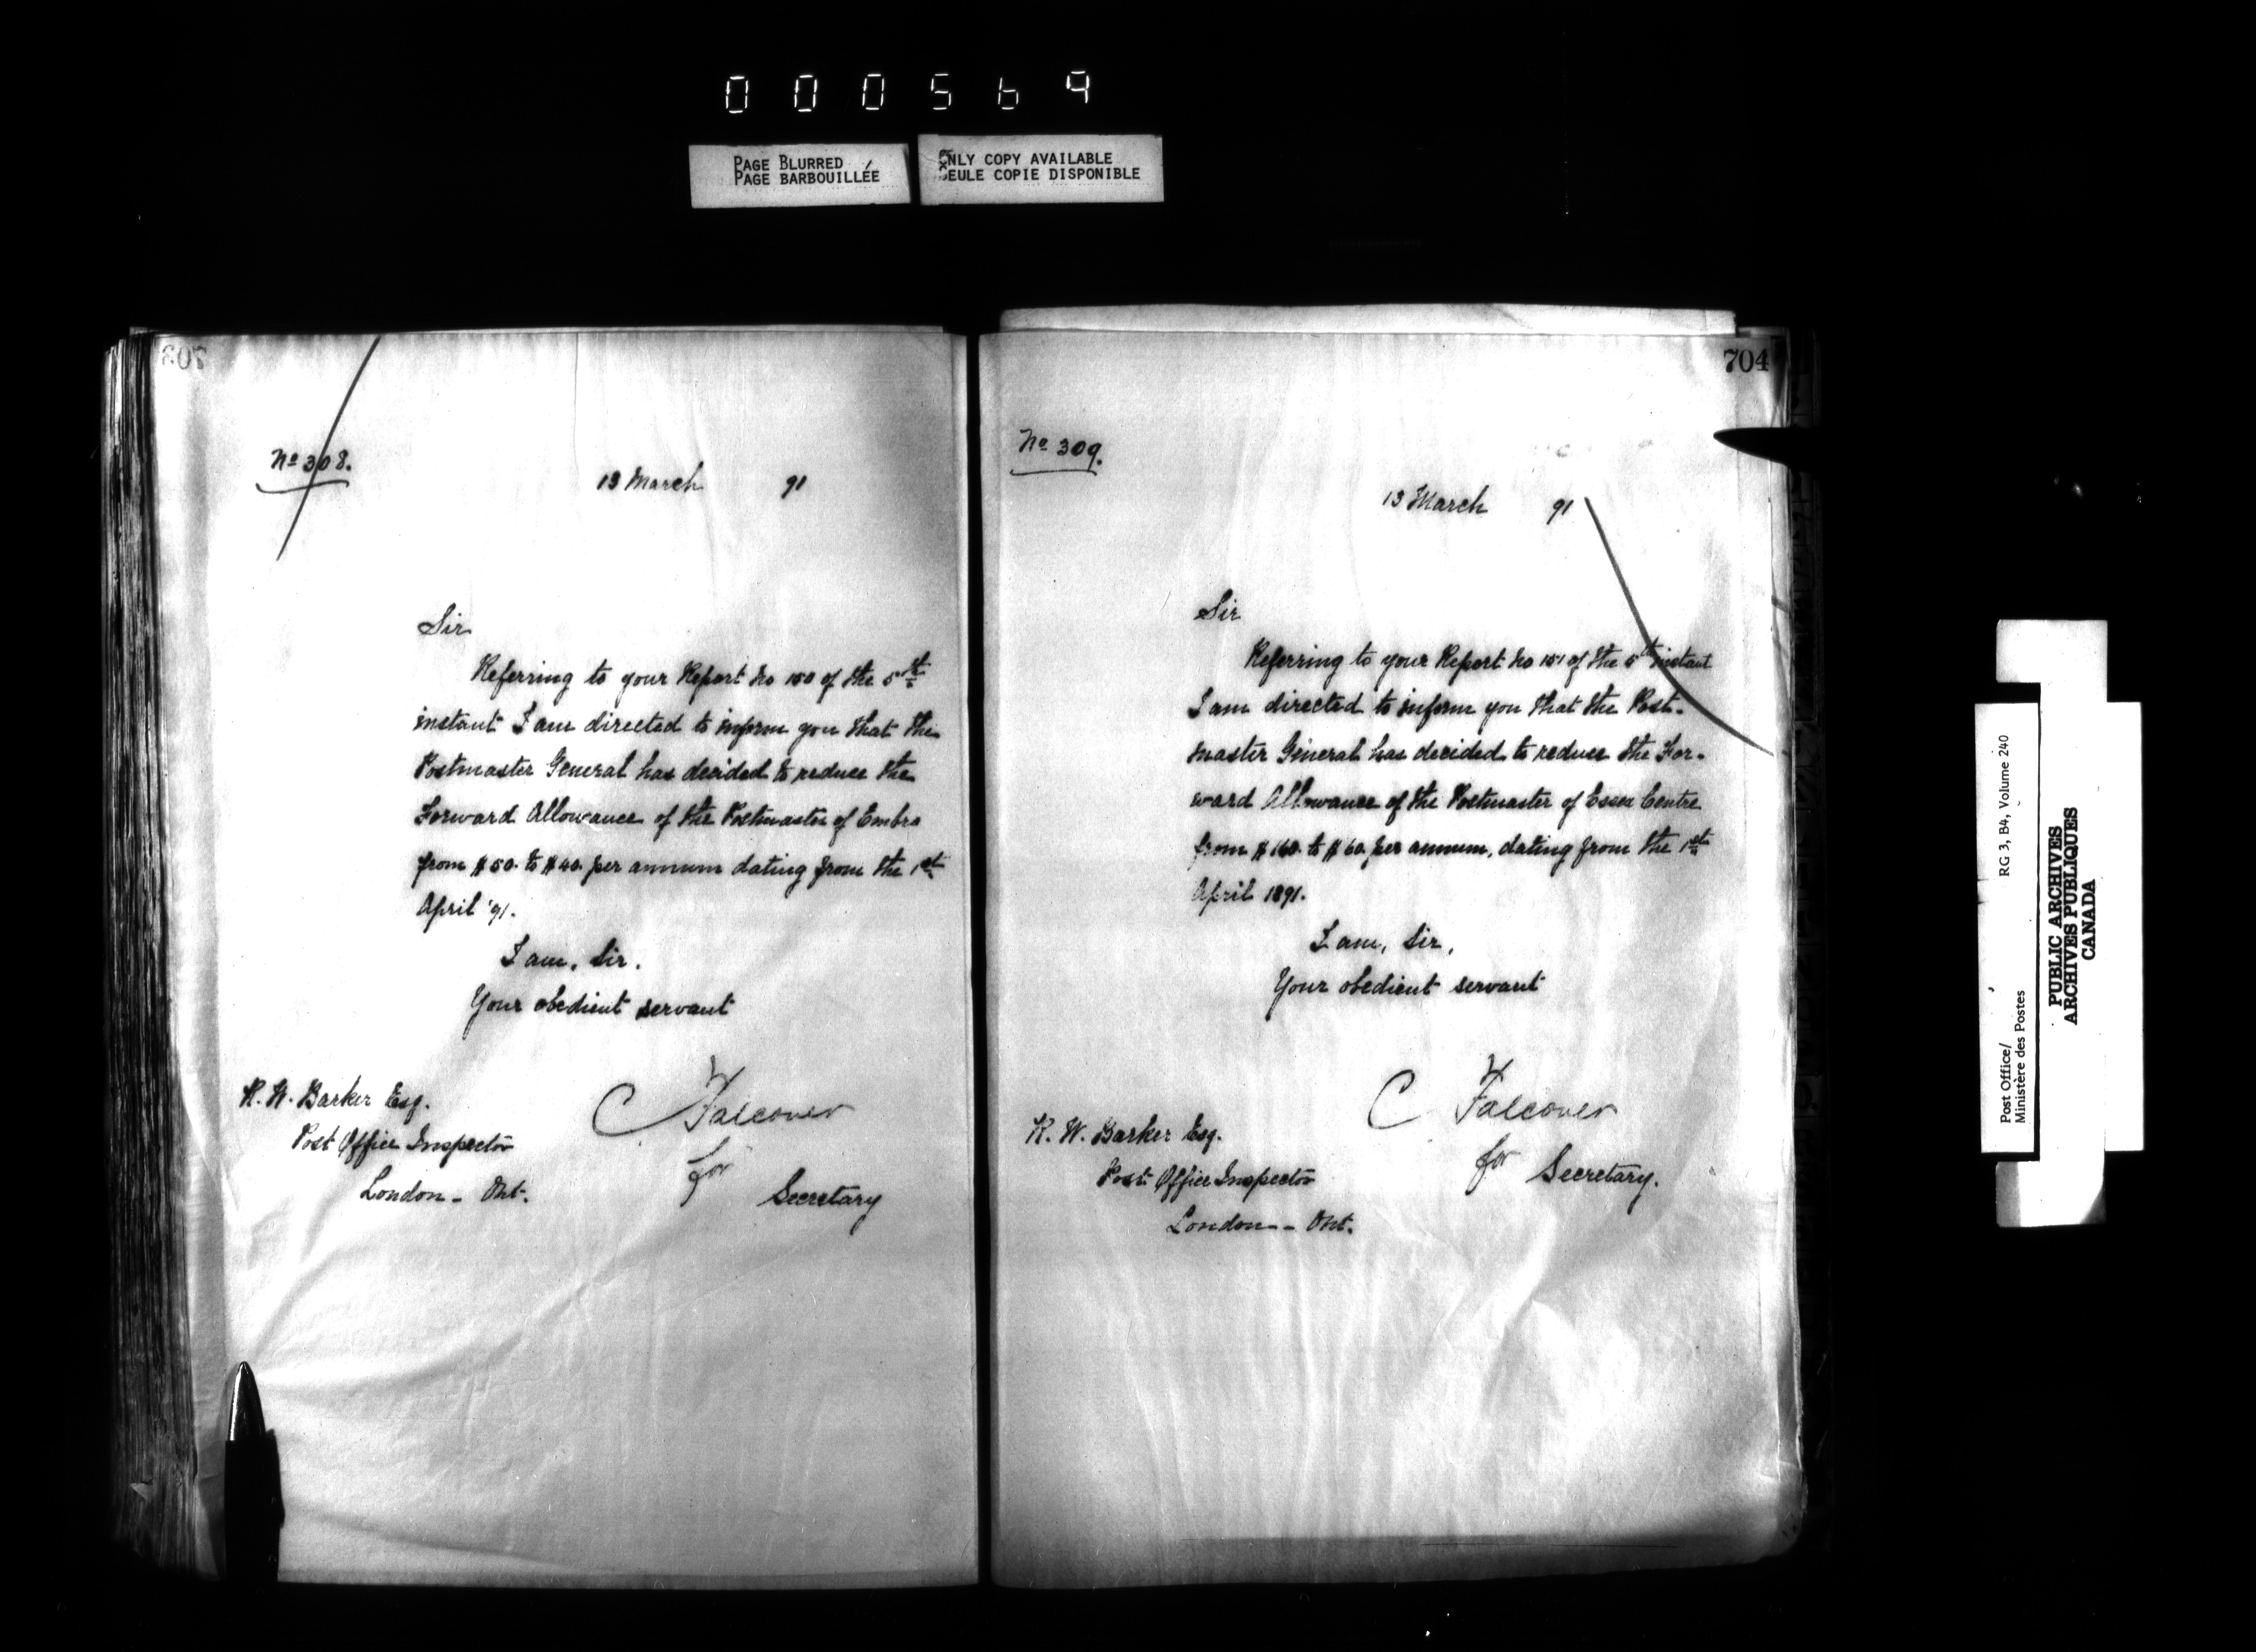 000569
PAGE BLURRED
PAGE BARBOUILLÉE
ONLY COPY AVAILABLE
SEULE COPIE DISPONIBLE
703
No 308.
13 March 91
Sir
Referring to your Report No 150 of the 5th
instant I am directed to inform you that the
Postmaster General has decided to reduce the
Forward Allowance of the Postmaster of Embro
from $50. to $40. per annum dating from the 1st
April '91.
I am, Sir.
Your obedient servant
C Falconer
for
Secretary
R. W. Barker Esq.
Post Office Inspector
London - Ont.
704
No 309.
13 March 91
Sir
Referring to your Report No 151 of the 5th instant
I am directed to inform you that the Post-
master General has decided to reduce the For-
ward Allowance of the Postmaster of Essex Centre
from $160. to $60. per annum, dating from the 1st
April 1891.
I am, Sir,
Your obedient servant
C Falconer
for Secretary.
R. W. Barker Esq.
Post Office Inspector
London - Ont.
Post Office/
Ministère des Postes
RG 3, B4, Volume 240
PUBLIC ARCHIVES
ARCHIVES PUBLIQUES
CANADA